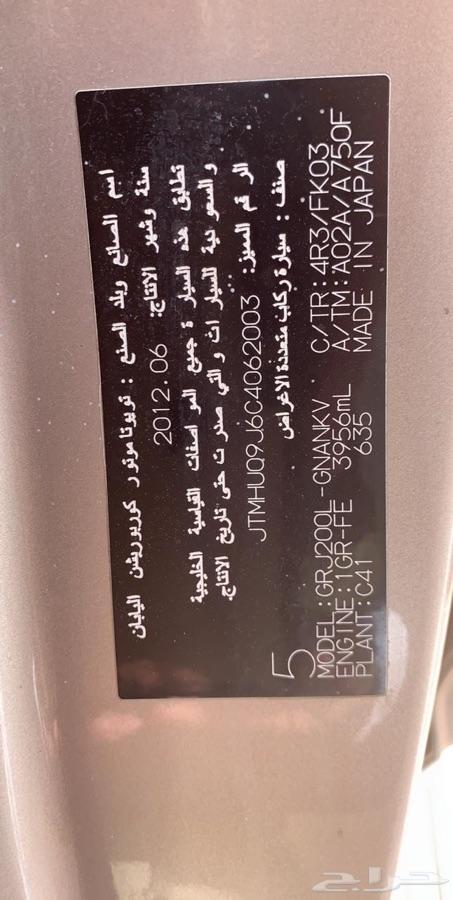 اسم الصانع وبلد الصنع : تويوتا موتور كوربوريشن اليابان
سنة وشهر الانتاج: 2012.06
تطابق هذه السيارة جميع المواصفات القياسية الخليجية
والسعودية للسيارات والتي صدرت حتى تاريخ الانتاج.
الرقم المميز: JTMHUQ9J6C4062003
صنف : سيارة ركاب متعددة الاغراض
5
MODEL:GRJ200L-GNANKV C/TR:4R3/FK03
ENGINE:1GR-FE 3956mL A/TM:A02A/A750F
PLANT:C41 635 MADE IN JAPAN
حراج